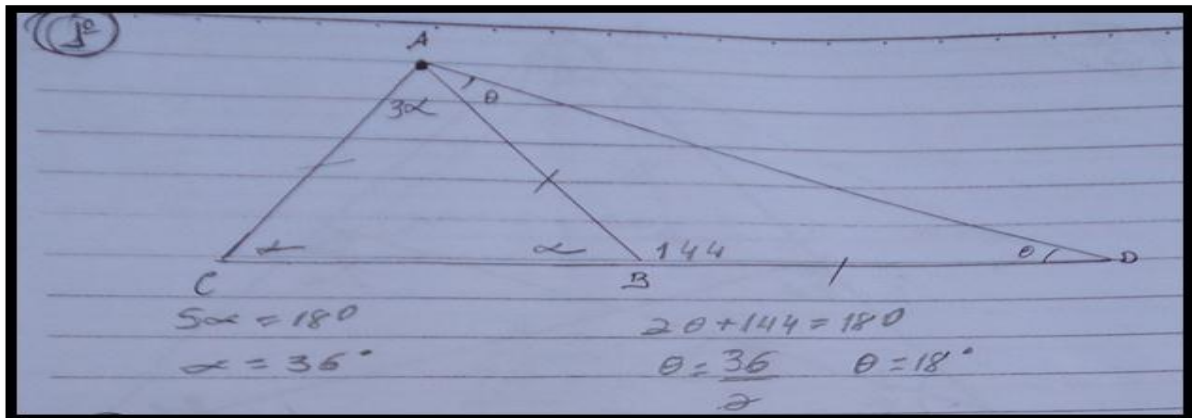 1º
A
3α θ
α α 144 θ D
C B
5α = 180 2θ + 144 = 180
α = 36° θ = 36/2 θ = 18°